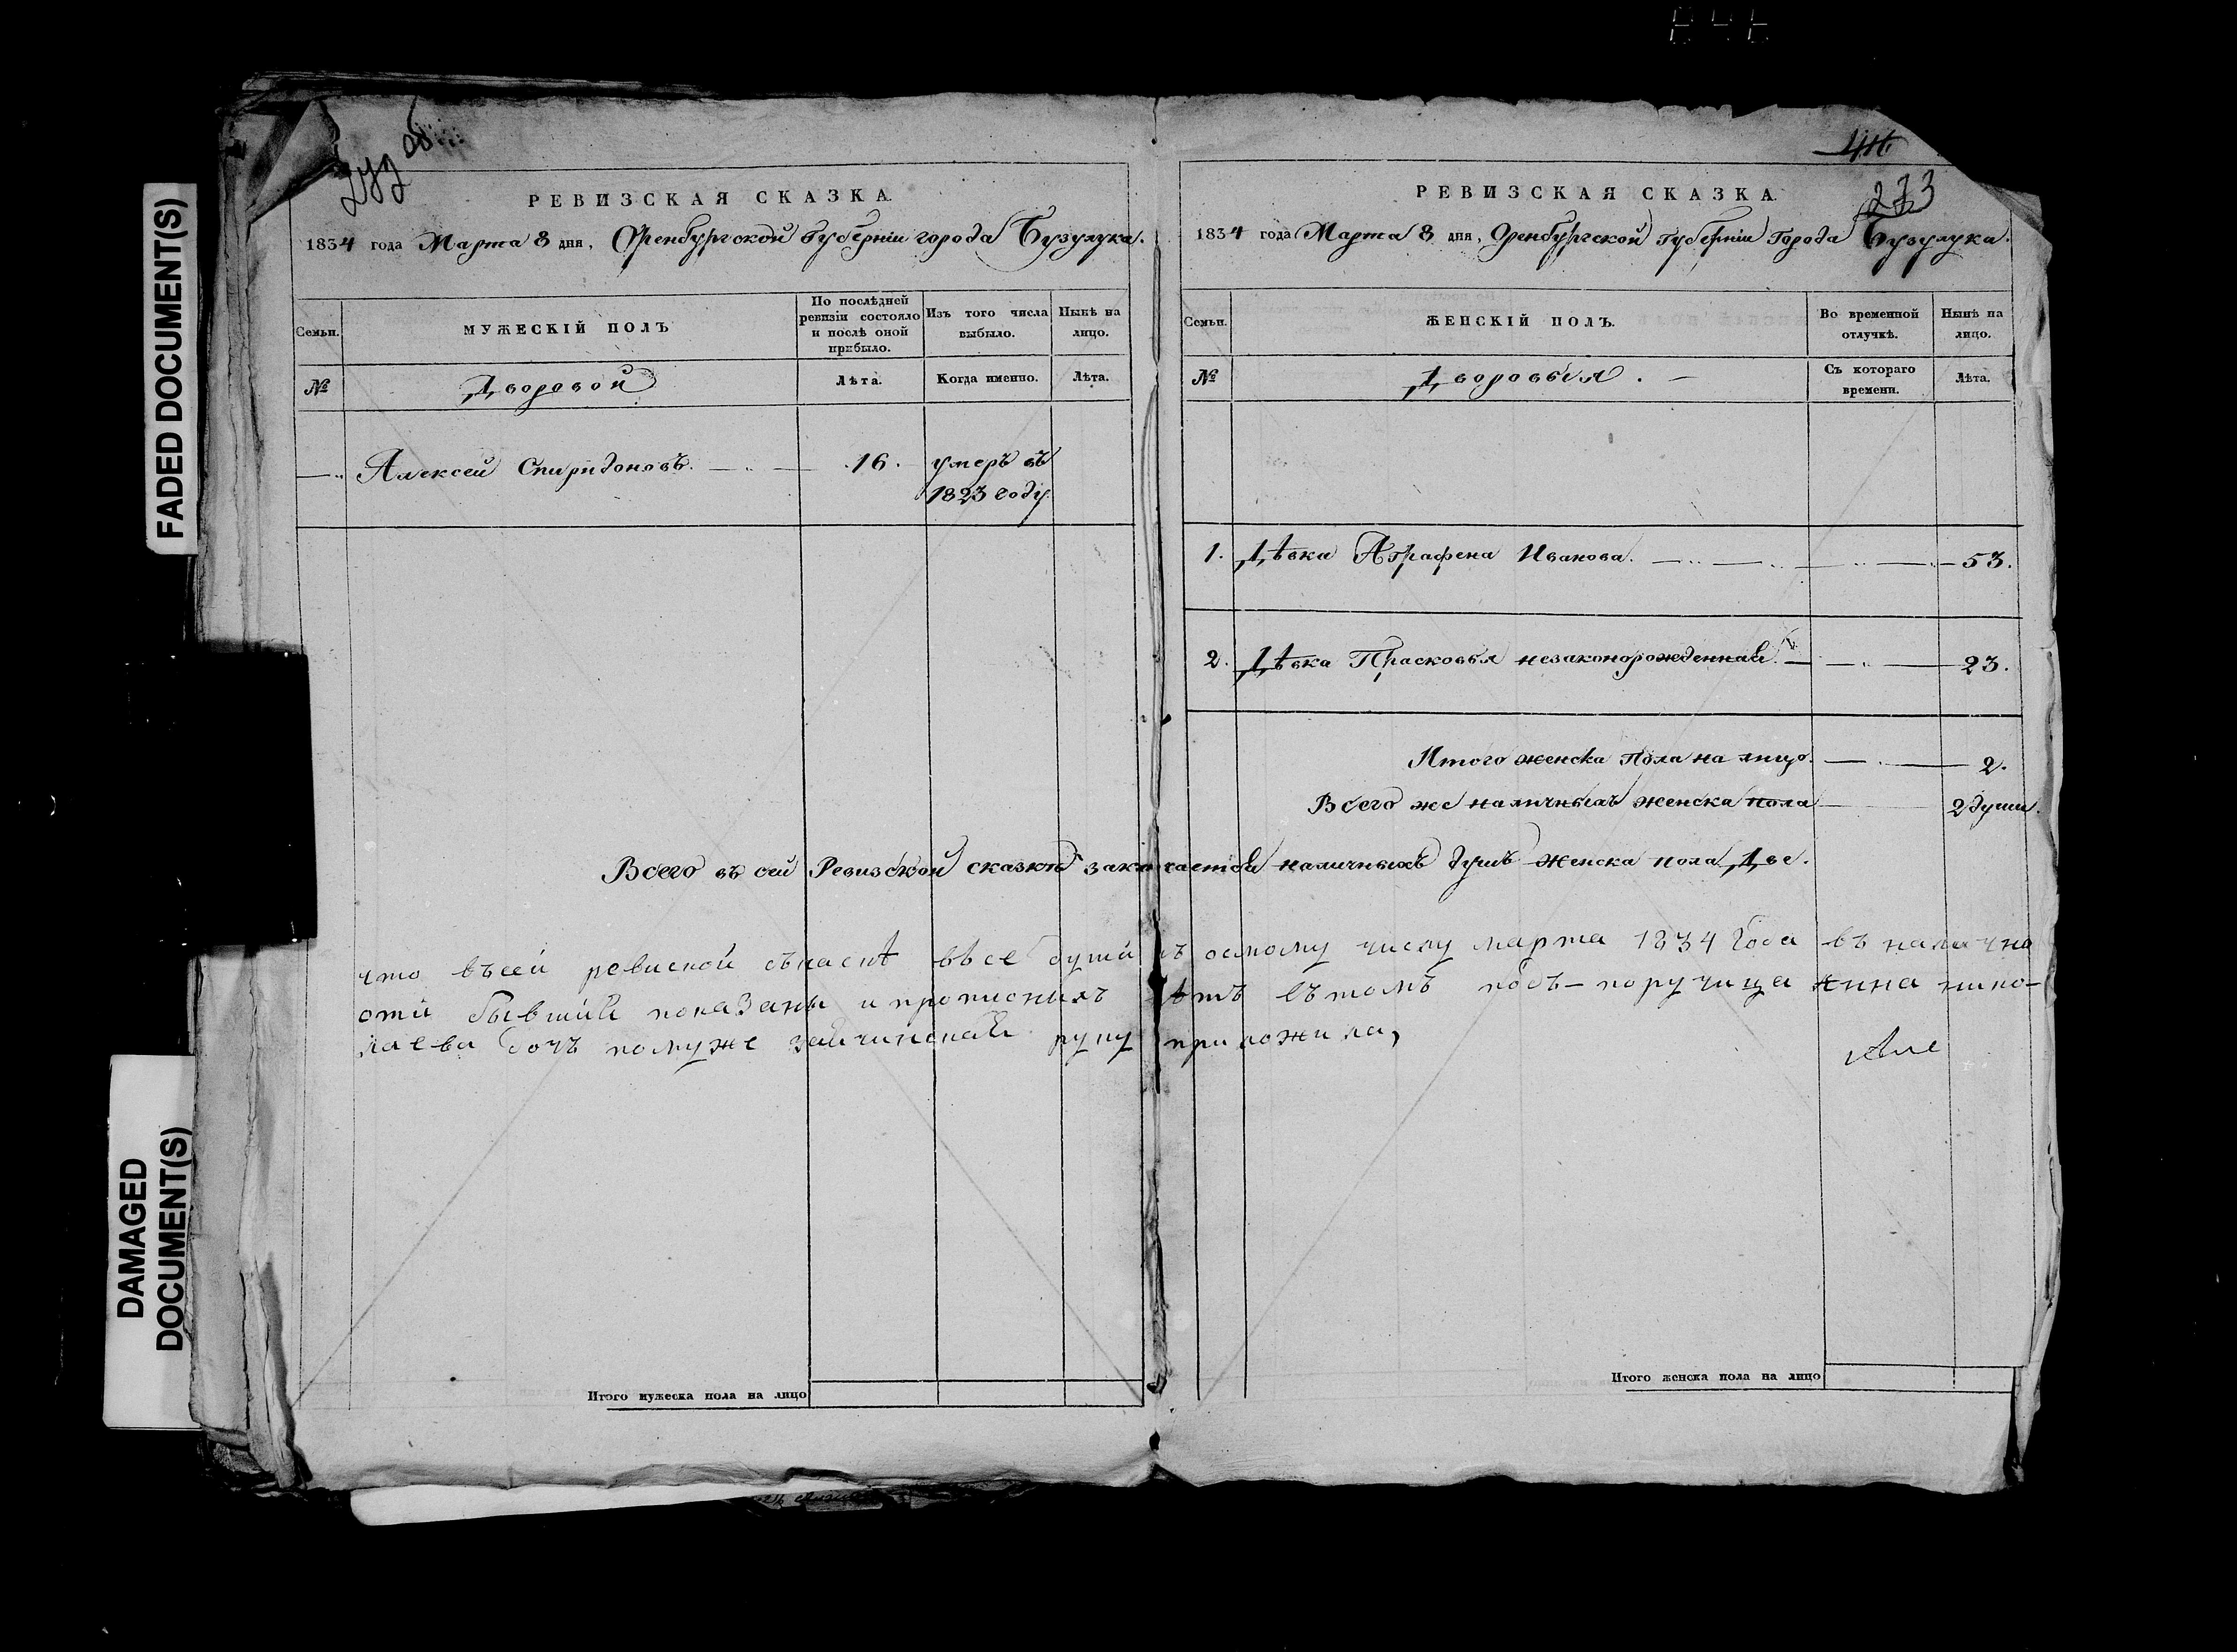 FADED DOCUMENT(S)
DAMAGED
DOCUMENT(S)
272 об
РЕВИЗСКАЯ СКАЗКА.
1834 года Марта 8 дня, Оренбургской губерніи города Бузулука.
Семьи.
МУЖЕСКІЙ ПОЛЪ
По послѣдней
ревизіи состояло
и послѣ оной
прибыло.
Изъ того числа
выбыло.
Нынѣ на
лицо.
№
Дворовой
Лѣта.
Когда именно.
Лѣта.
Алексей Спиридоновъ.
16.
умеръ въ
1823 году
Итого мужеска пола на лицо
416
273
РЕВИЗСКАЯ СКАЗКА.
1834 года Марта 8 дня, Оренбургской губерніи Города Бузулука.
Семьи.
ЖЕНСКІЙ ПОЛЪ.
Во временной
отлучкѣ.
Нынѣ на
лицо.
№
Дворовыя.
Съ котораго
времени.
Лѣта.
1. Дѣвка Аграфена Иванова. 53.
2. Дѣвка Прасковья незаконорожденная 23.
Итого женска пола на лицо. 2.
Всего же наличныхъ женска пола 2 души.
Всего въ сей Ревизской сказкѣ заключается наличныхъ душъ женска пола Две.
что въсей ревиской съкаскѣ въсе души къ осмому числу марта 1834 Года въ налично
сти бывшия показаны и прописныхъ нѣтъ въ томъ подъ-поручица Анна нико-
лаева дочъ помуже руку приложила,
Али
Итого женска пола на лицо